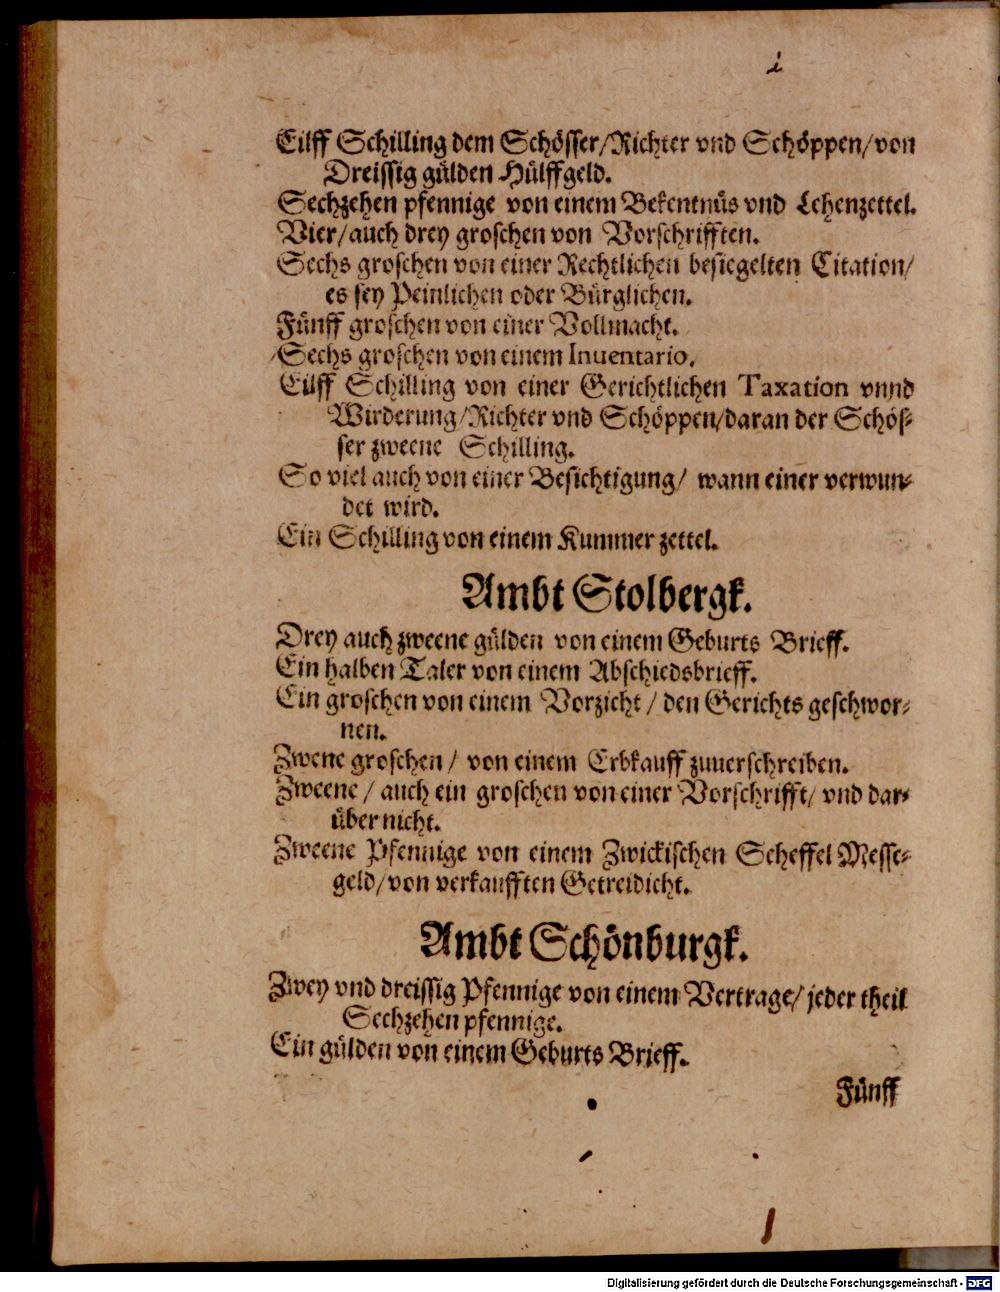 Eilff Schilling dem Schösser/Richter vnd Schöppen/von
Dreissig gülden Hülffgeld.
Sechzehen pfennige von einem Bekentnüs vnd Lehenzettel.
Vier/auch drey groschen von Vorschrifften.
Sechs groschen von einer Rechtlichen besiegelten Citation/
es sey Peinlichen oder Bürglichen.
Fünff groschen von einer Vollmacht.
Sechs groschen von einem Inuentario.
Eilff Schilling von einer Gerichtlichen Taxation vnnd
Wirderung/Richter vnd Schöppen/daran der Schös-
ser zweene Schilling.
So viel auch von einer Besichtigung/ wann einer verwun-
det wird.
Ein Schilling von einem Kummer zettel.
Ambt Stolbergk.
Drey auch zweene gülden von einem Geburts Brieff.
Ein halben Taler von einem Abschiedsbrieff.
Ein groschen von einem Vorzicht / den Gerichts geschwor-
nen.
Zwene groschen / von einem Erbkauff zuuerschreiben.
Zweene / auch ein groschen von einer Vorschrifft/ vnd dar-
über nicht.
Zweene Pfennige von einem Zwickischen Scheffel Messe-
geld/von verkaufften Getreidicht.
Ambt Schönburgk.
Zwey vnd dreissig Pfennige von einem Vertrage/ jeder theil
Sechzehen pfennige.
Ein gülden von einem Geburts Brieff.
Fünff
Digitalisierung gefördert durch die Deutsche Forschungsgemeinschaft - DFG